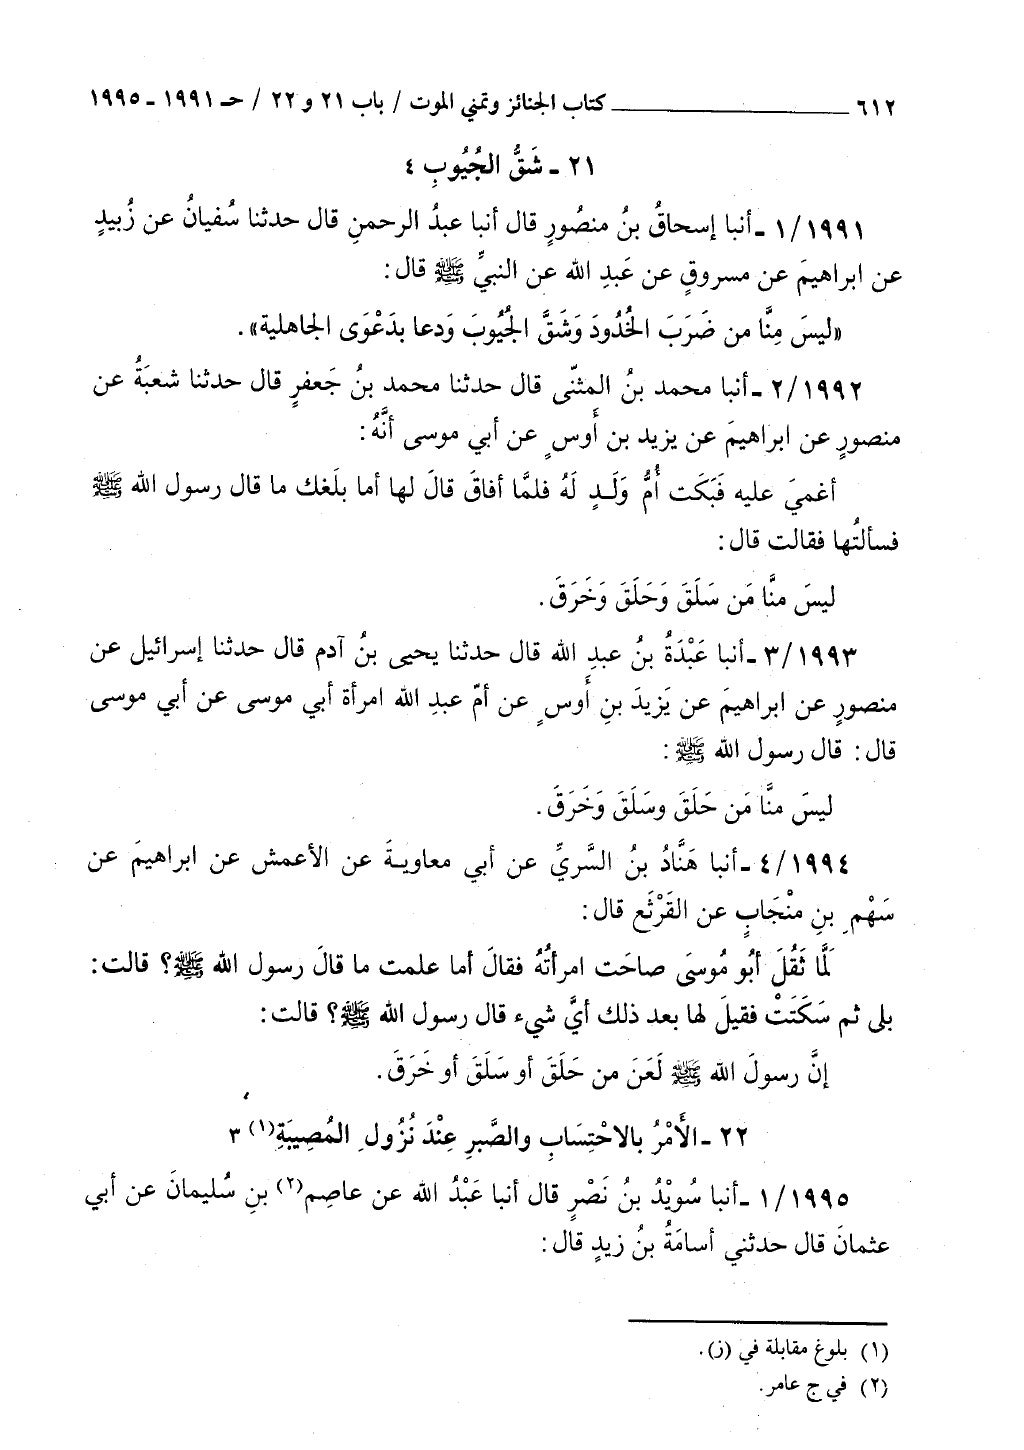 ٦١٢ ـــــــــــــــــــــ كتاب الجنائز وتمني الموت / باب ٢١ و ٢٢ / حـ ١٩٩١ ـ ١٩٩٥
٢١ ـ شَقُّ الجُيُوبِ ٤
١/١٩٩١ ـ أنبا إسحاقُ بنُ منصُورٍ قال أنبا عبدُ الرحمنِ قال حدثنا سُفيانُ عن زُبيدٍ
عن ابراهيمَ عن مسروقٍ عن عَبدِ الله عن النبيِّ ﷺ قال:
«ليسَ مِنَّا من ضَرَبَ الخُدُودَ وَشَقَّ الجُيُوبَ وَدعا بدَعْوَى الجاهلية».
٢/١٩٩٢ ـ أنبا محمد بنُ المثنّى قال حدثنا محمد بنُ جَعفرٍ قال حدثنا شعبَةُ عن
منصورٍ عن ابراهيمَ عن يزيد بن أَوسٍ عن أبي موسى أنَّهُ:
أغميَ عليه فَبَكَت أُمُّ وَلَدٍ لَهُ فلمَّا أفاقَ قالَ لها أما بلَغك ما قال رسول الله ﷺ
فسألتُها فقالت قال:
ليسَ منَّا مَن سَلَقَ وَحَلَقَ وَخَرَقَ.
٣/١٩٩٣ ـ أنبا عَبْدَةُ بنُ عبدِ الله قال حدثنا يحيى بنُ آدم قال حدثنا إسرائيل عن
منصورٍ عن ابراهيمَ عن يَزيدَ بنِ أَوسٍ عن أمّ عبدِ الله امرأة أبي موسى عن أبي موسى
قال: قال رسول الله ﷺ:
ليسَ منَّا مَن حَلَقَ وسَلَقَ وَخَرَقَ.
٤/١٩٩٤ ـ أنبا هَنَّادُ بنُ السَّريِّ عن أبي معاويةَ عن الأعمش عن ابراهيمَ عن
سَهْمِ بنِ منْجَابٍ عن القَرْثَع قال:
لَمَّا ثَقُلَ أبُو مُوسَى صاحَت امرأتُهُ فقالَ أما علمت ما قالَ رسول الله ﷺ؟ قالت:
بلى ثم سَكَتَتْ فقيلَ لها بعد ذلك أيَّ شيء قال رسول الله ﷺ؟ قالت:
إنَّ رسولَ الله ﷺ لَعَنَ من حَلَقَ أو سَلَقَ أو خَرَقَ.
٢٢ ـ الأَمْرُ بالاحْتِسَابِ والصَّبرِ عِنْدَ نُزُولِ المُصِيبَةِ(١) ٣
١/١٩٩٥ ـ أنبا سُويْدُ بنُ نَصْرٍ قال أنبا عَبْدُ الله عن عاصِم(٢) بنِ سُليمانَ عن أبي
عثمانَ قال حدثني أسامَةُ بنُ زيدٍ قال:
(١) بلوغ مقابلة في (ز).
(٢) في ج عامر.